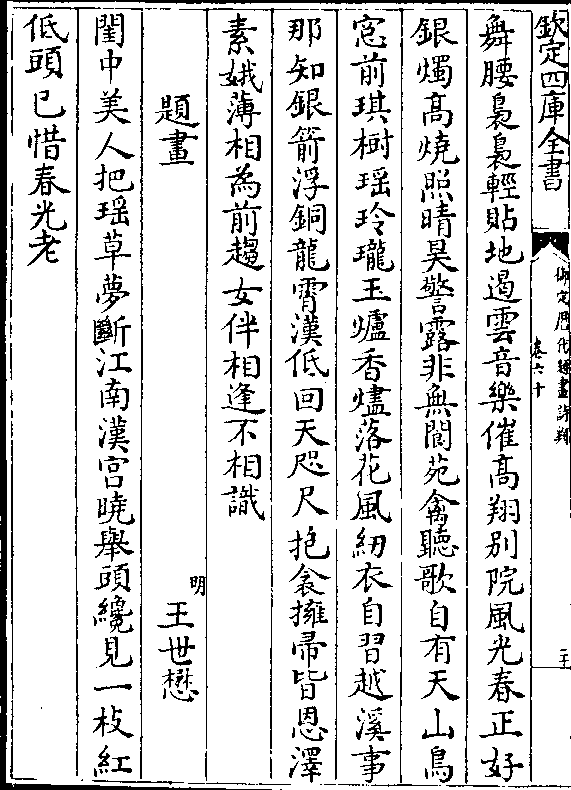 欽定四庫全書
御定歷代題畫詩類
卷六十
舞腰裊裊輕貼地遏雲音樂催高翔别院風光春正好
銀燭高燒照晴昊警露非無閬苑禽聽歌自有天山鳥
窓前琪樹瑶玲瓏玉爐香燼落花風紉衣自習越溪事
那知銀箭浮銅龍霄漢低回天咫尺抱衾擁帚皆恩澤
素娥薄相為前趨女伴相逢不相識
題畫
明 王世懋
閨中美人把瑶草夢斷江南漢宫曉舉頭纔見一枝紅
低頭已惜春光老